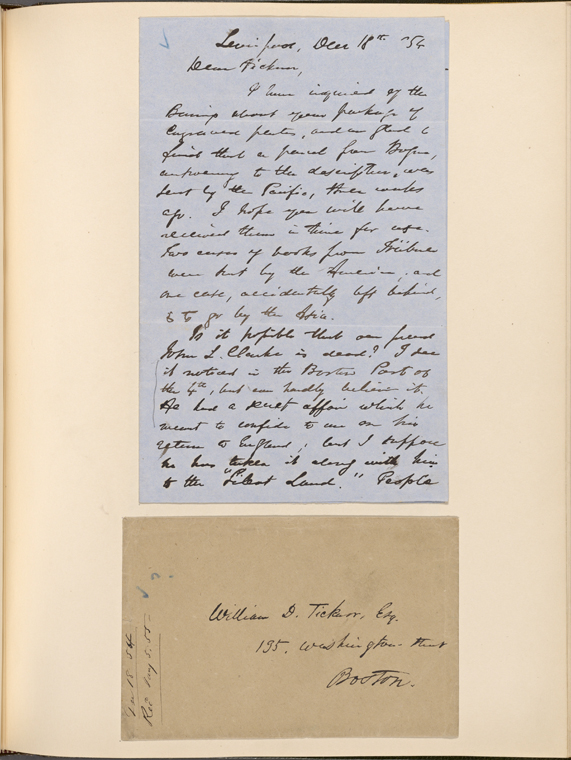 Liverpool, Decr 18th '54
Dear Ticknor,
I have inquired of the
Barings about your package of
engraved plates, and am glad to
find that a parcel from Bogue,
answering to the description, was
sent by the Pacific, three weeks
ago. I hope you will have
received them in time for use.
Two cases of books from Trübner
were sent by the America, and
one case, accidentally left behind,
is to go by the Asia.
Is it possible that our friend
John L. Clarke is dead? I see
it noticed in the Boston Post of
the 4th, but can hardly believe it.
He had a secret affair which he
meant to confide to me on his
return to England; but I suppose
he has taken it along with him
to the "Silent Land." People
William D. Ticknor, Esq.
135, Washington street
Boston.
18 54
Recd Jany 5, 55